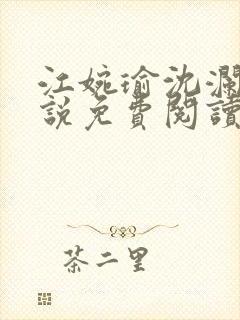 江婉瑜沈瀾
說免費閱讀
茶二里